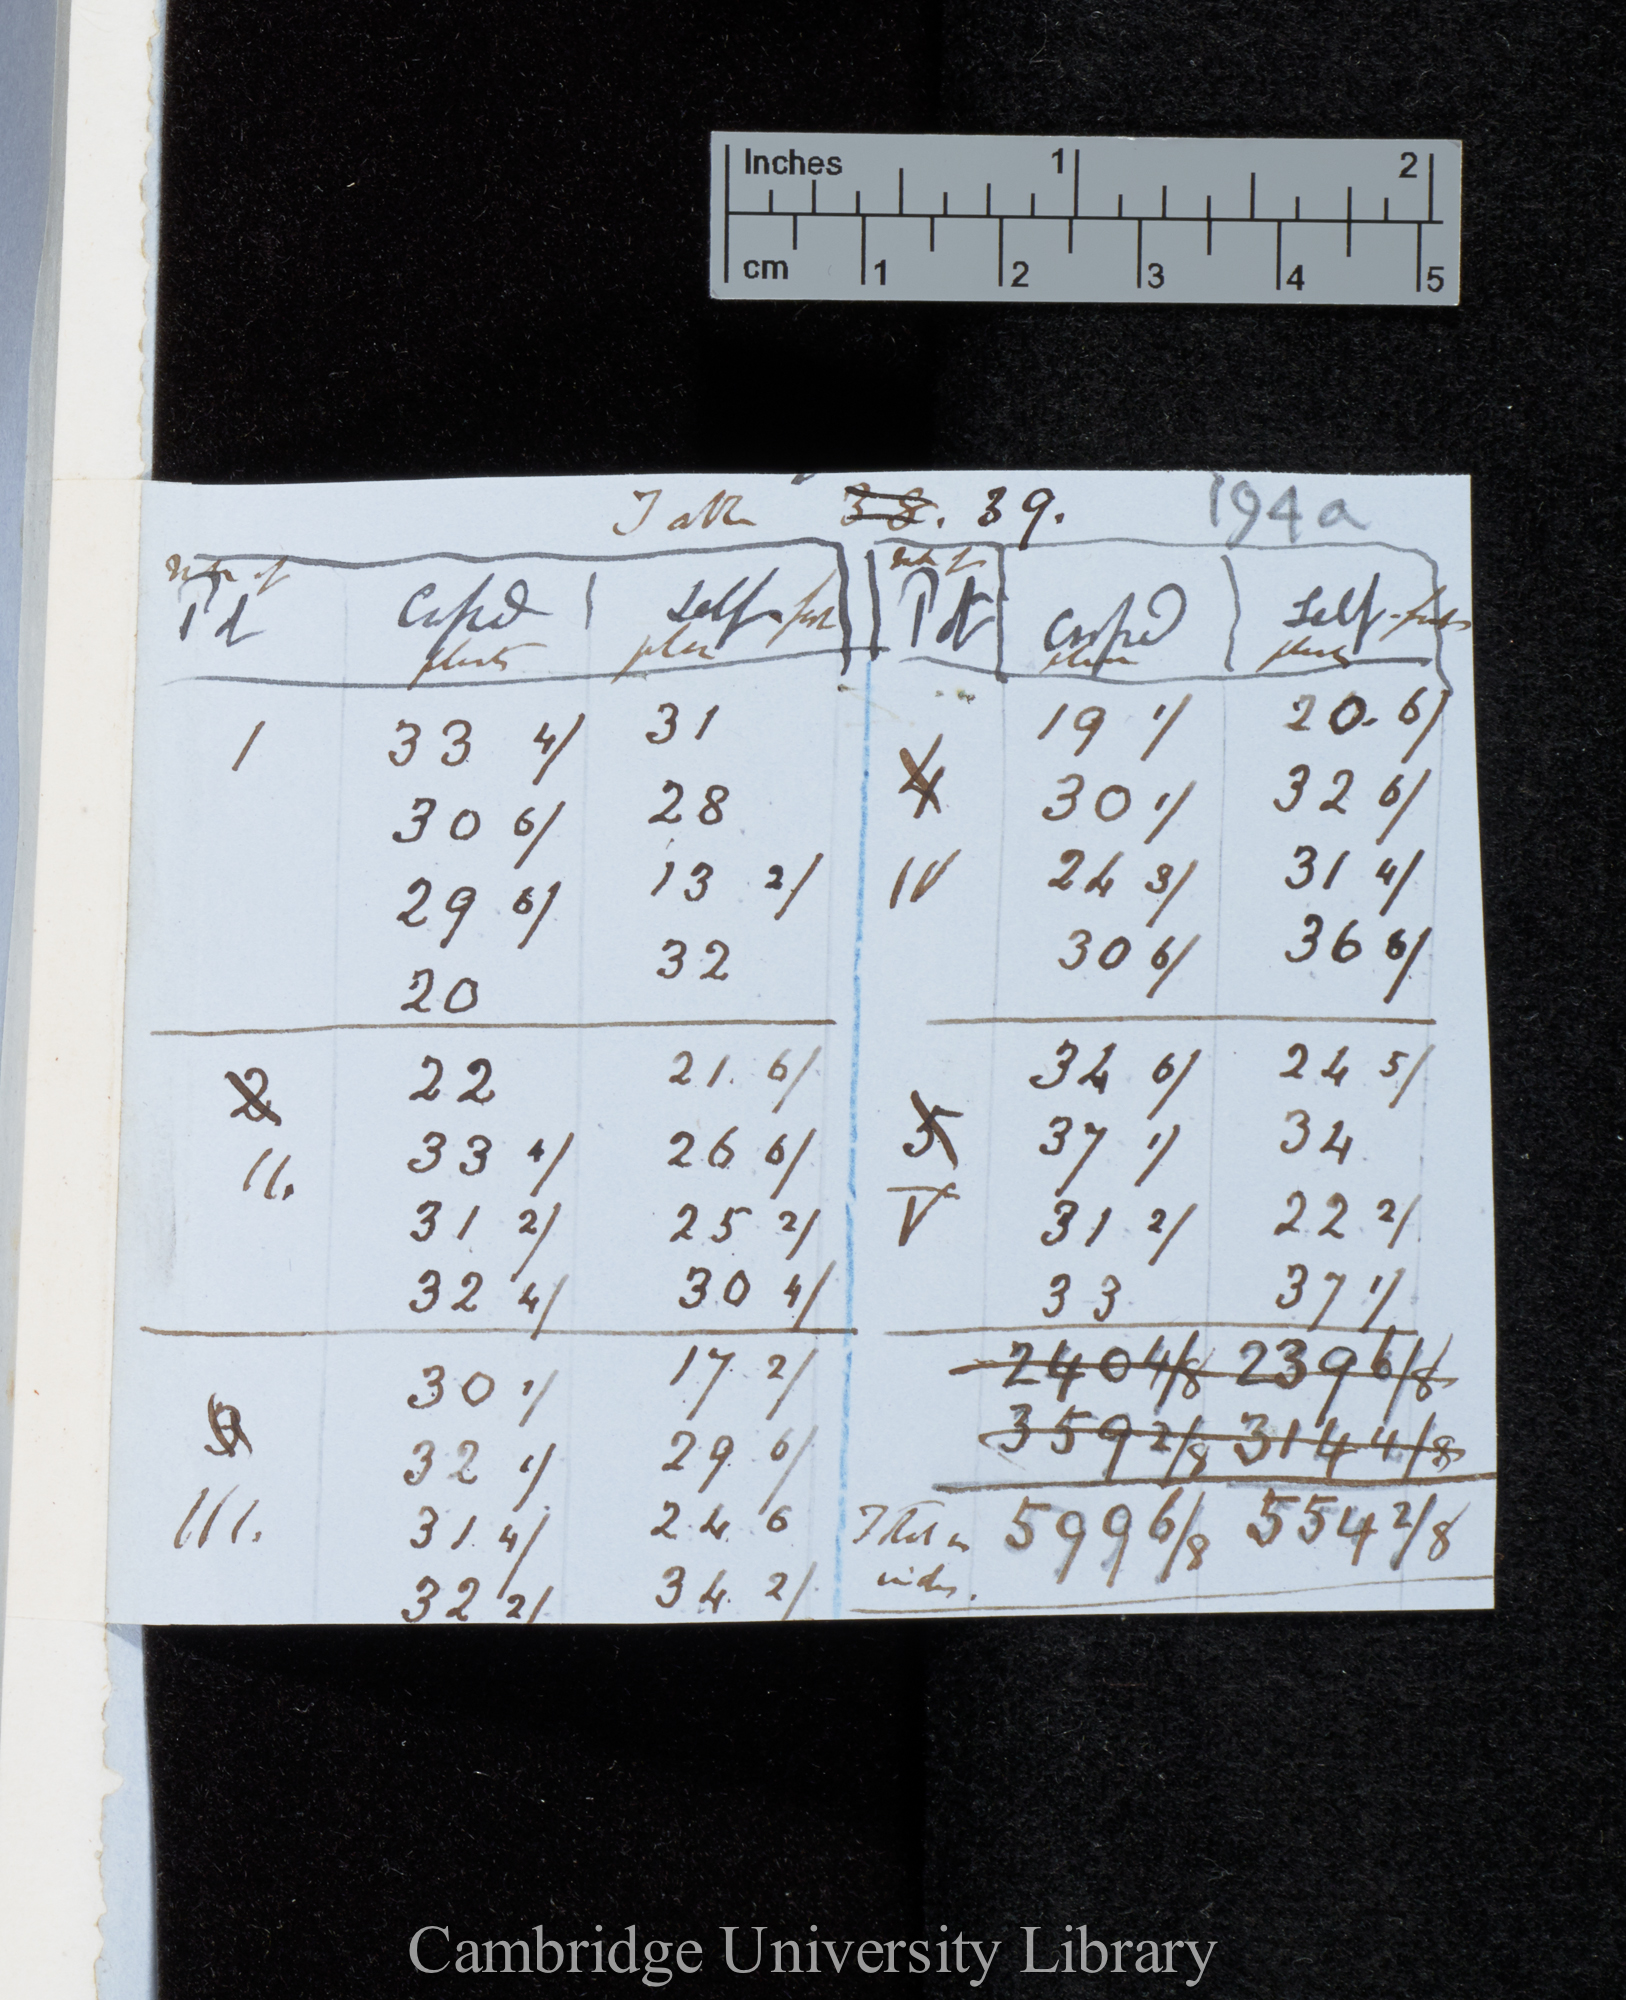 Inches 1 2
cm 1 2 3 4 5
Table 38. 39. 194a
No of
Pot Crossed Self-fert
plants plants
1 33 4/ 31
30 6/ 28
29 6/ 13 2/
20 32
2 22 21. 6/
II. 33 4/ 26 6/
31 2/ 25 2/
32 4/ 30 4/
3 30 1/ 17 2/
32 1/ 29 6/
III. 31 4/ 24 6
32 2/ 34 2/
No of
Pot Crossed Self-fert
plants plants
19 1/ 20. 6/
4 30 1/ 32 6/
IV 24 3/ 31 4/
30 6/ 36 6/
34 6/ 24 5/
5 37 1/ 34
V 31 2/ 22 2/
33 37 1/
240 4/8 239 6/8
359 2/8 314 4/8
Total in 599 6/8 554 2/8
inches.
Cambridge University Library